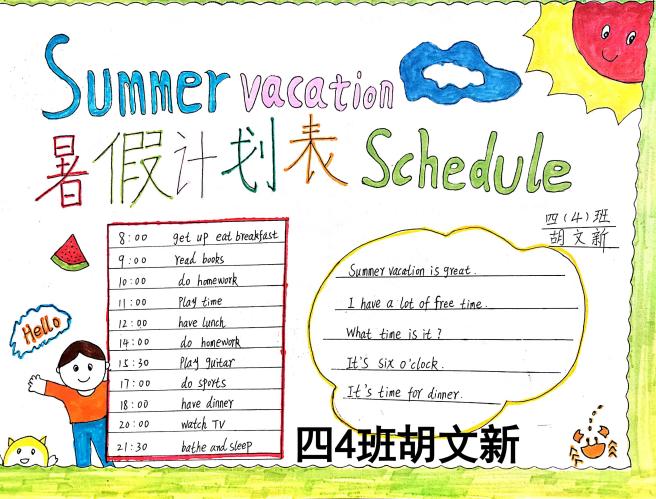 Summer vacation
暑假计划表 Schedule
四(4)班
胡文新
8:00 get up eat breakfast
9:00 read books
10:00 do homework
11:00 Play time
12:00 have lunch
14:00 do homework
15:30 Play guitar
17:00 do sports
18:00 have dinner
20:00 watch TV
21:30 bathe and sleep
Summer vacation is great.
I have a lot of free time.
What time is it?
It's six o'clock.
It's time for dinner.
Hello
四4班胡文新